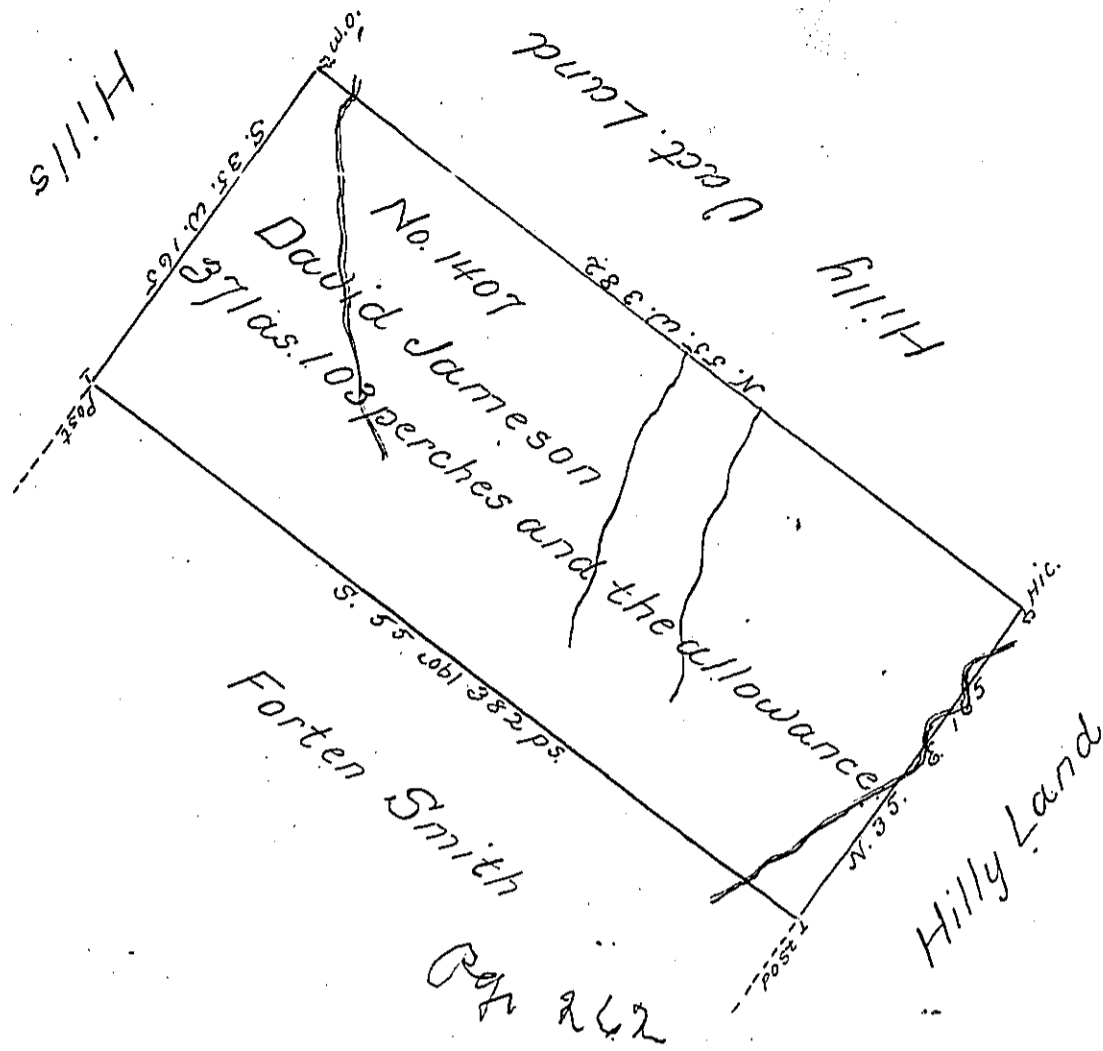 W.O.
Hills
Vact. Land
Hilly
S. 35. W. 165
N. 55. W. 382
No. 1407
David Jameson
371as. 103 perches and the allowance.
Post
Hic.
S. 55 382 ps.
N. 35. E. 165
Forten Smith
Hilly Land
Post
Pg. 262